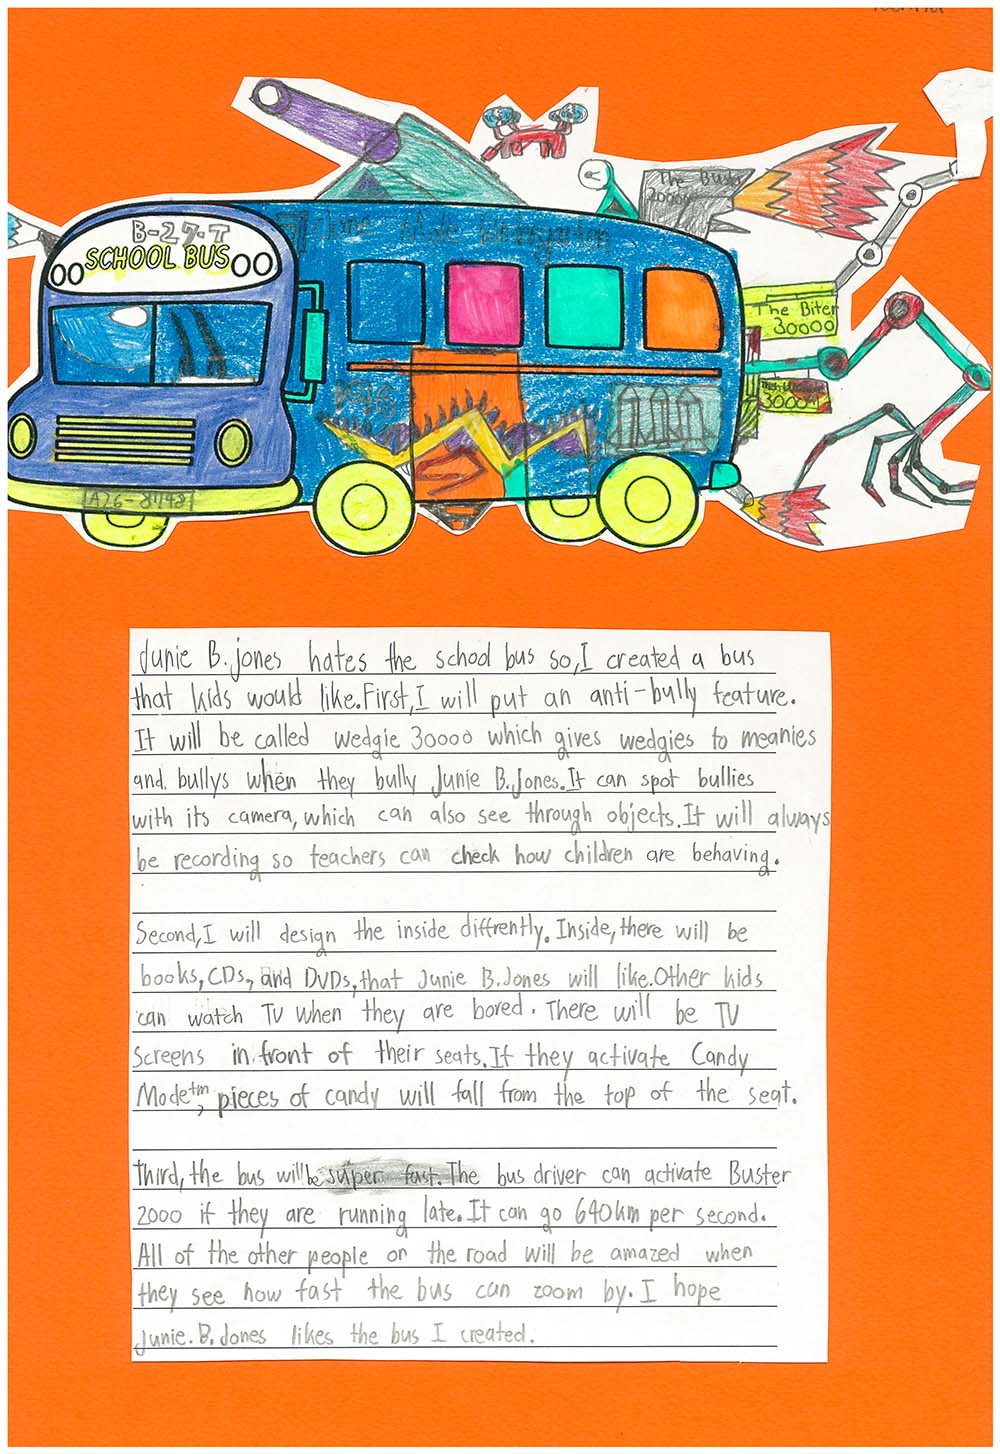 B-27-T
SCHOOL BUS
The Buster
2000
The Biter
30000
3000
Junie B. jones hates the school bus so, I created a bus
that kids would like. First, I will put an anti-bully feature.
It will be called wedgie 30000 which gives wedgies to meanies
and bullys when they bully Junie B. Jones. It can spot bullies
with its camera, which can also see through objects. It will always
be recording so teachers can check how children are behaving.
Second, I will design the inside diffrently. Inside, there will be
books, CDs, and DVDs, that Junie B. Jones will like. Other kids
can watch TV when they are bored. There will be TV
screens in front of their seats. If they activate Candy
Mode™, pieces of candy will fall from the top of the seat.
Third, the bus will be super fast. The bus driver can activate Buster
2000 if they are running late. It can go 640km per second.
All of the other people on the road will be amazed when
they see how fast the bus can zoom by. I hope
Junie. B. Jones likes the bus I created.